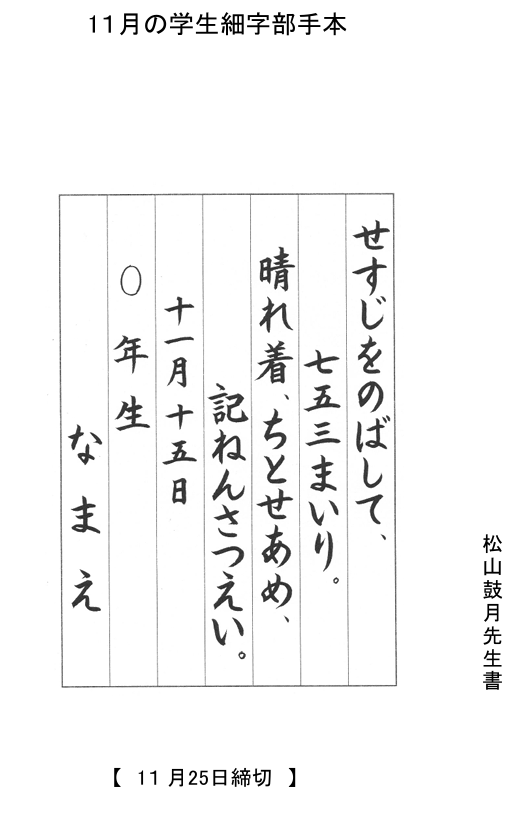 11月の学生細字部手本
せすじをのばして、
七五三まいり。
晴れ着、ちとせあめ、
記ねんさつえい。
十一月十五日
〇年生
なまえ
松山鼓月先生書
【 11月25日締切 】